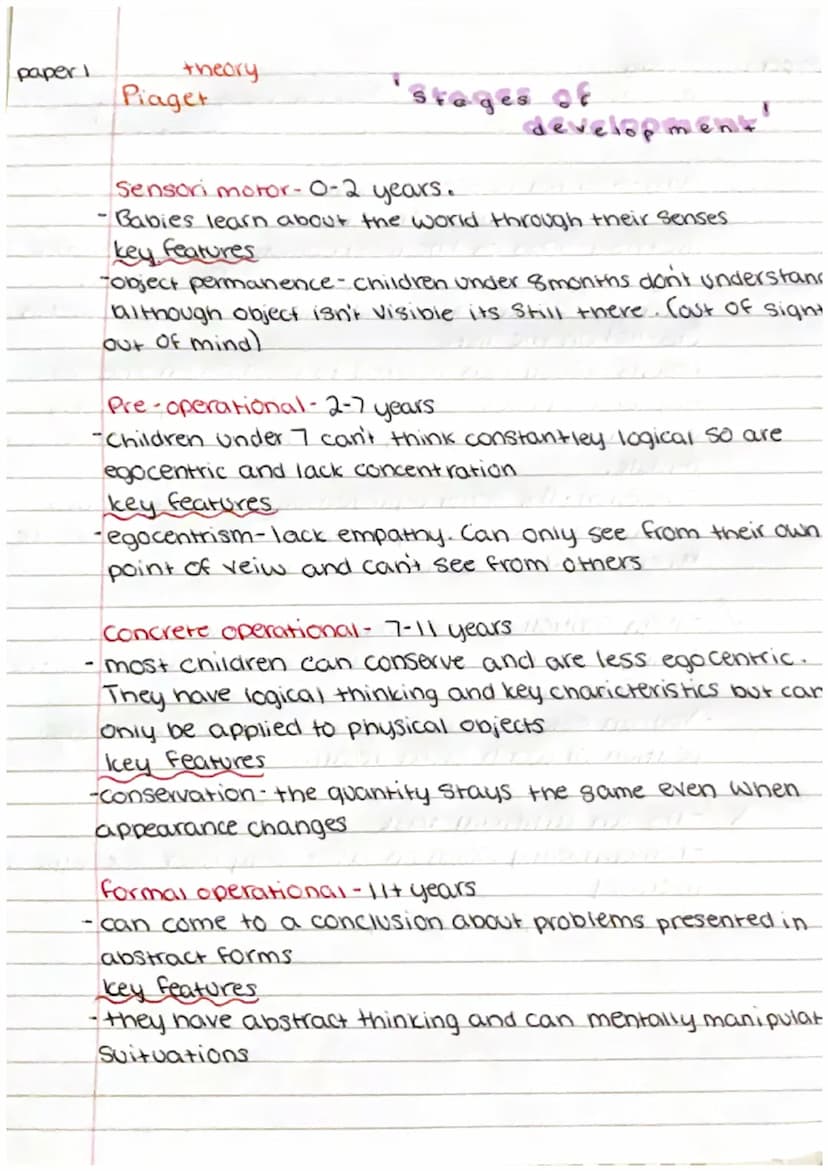 paper 1
theory
Piaget
'Stages of
development'
Sensori motor - 0-2 years.
- Babies learn about the world through their senses
key features
- object permanence - children under 8months don't understand
although object isn't visible its still there. (out of sight
out of mind)
Pre-operational - 2-7 years
- Children under 7 can't think constantley logical so are
egocentric and lack concentration
key features
- egocentrism - lack empathy. Can only see from their own
point of veiw and can't see from others
Concrete operational - 7-11 years
- most children can conserve and are less egocentric.
They have logical thinking and key charicteristics but can
only be applied to physical objects
key features
- conservation - the quantity stays the same even when
appearance changes
formal operational - 11+ years
- can come to a conclusion about problems presented in
abstract forms
key features
- they have abstract thinking and can mentally manipulat
suituations